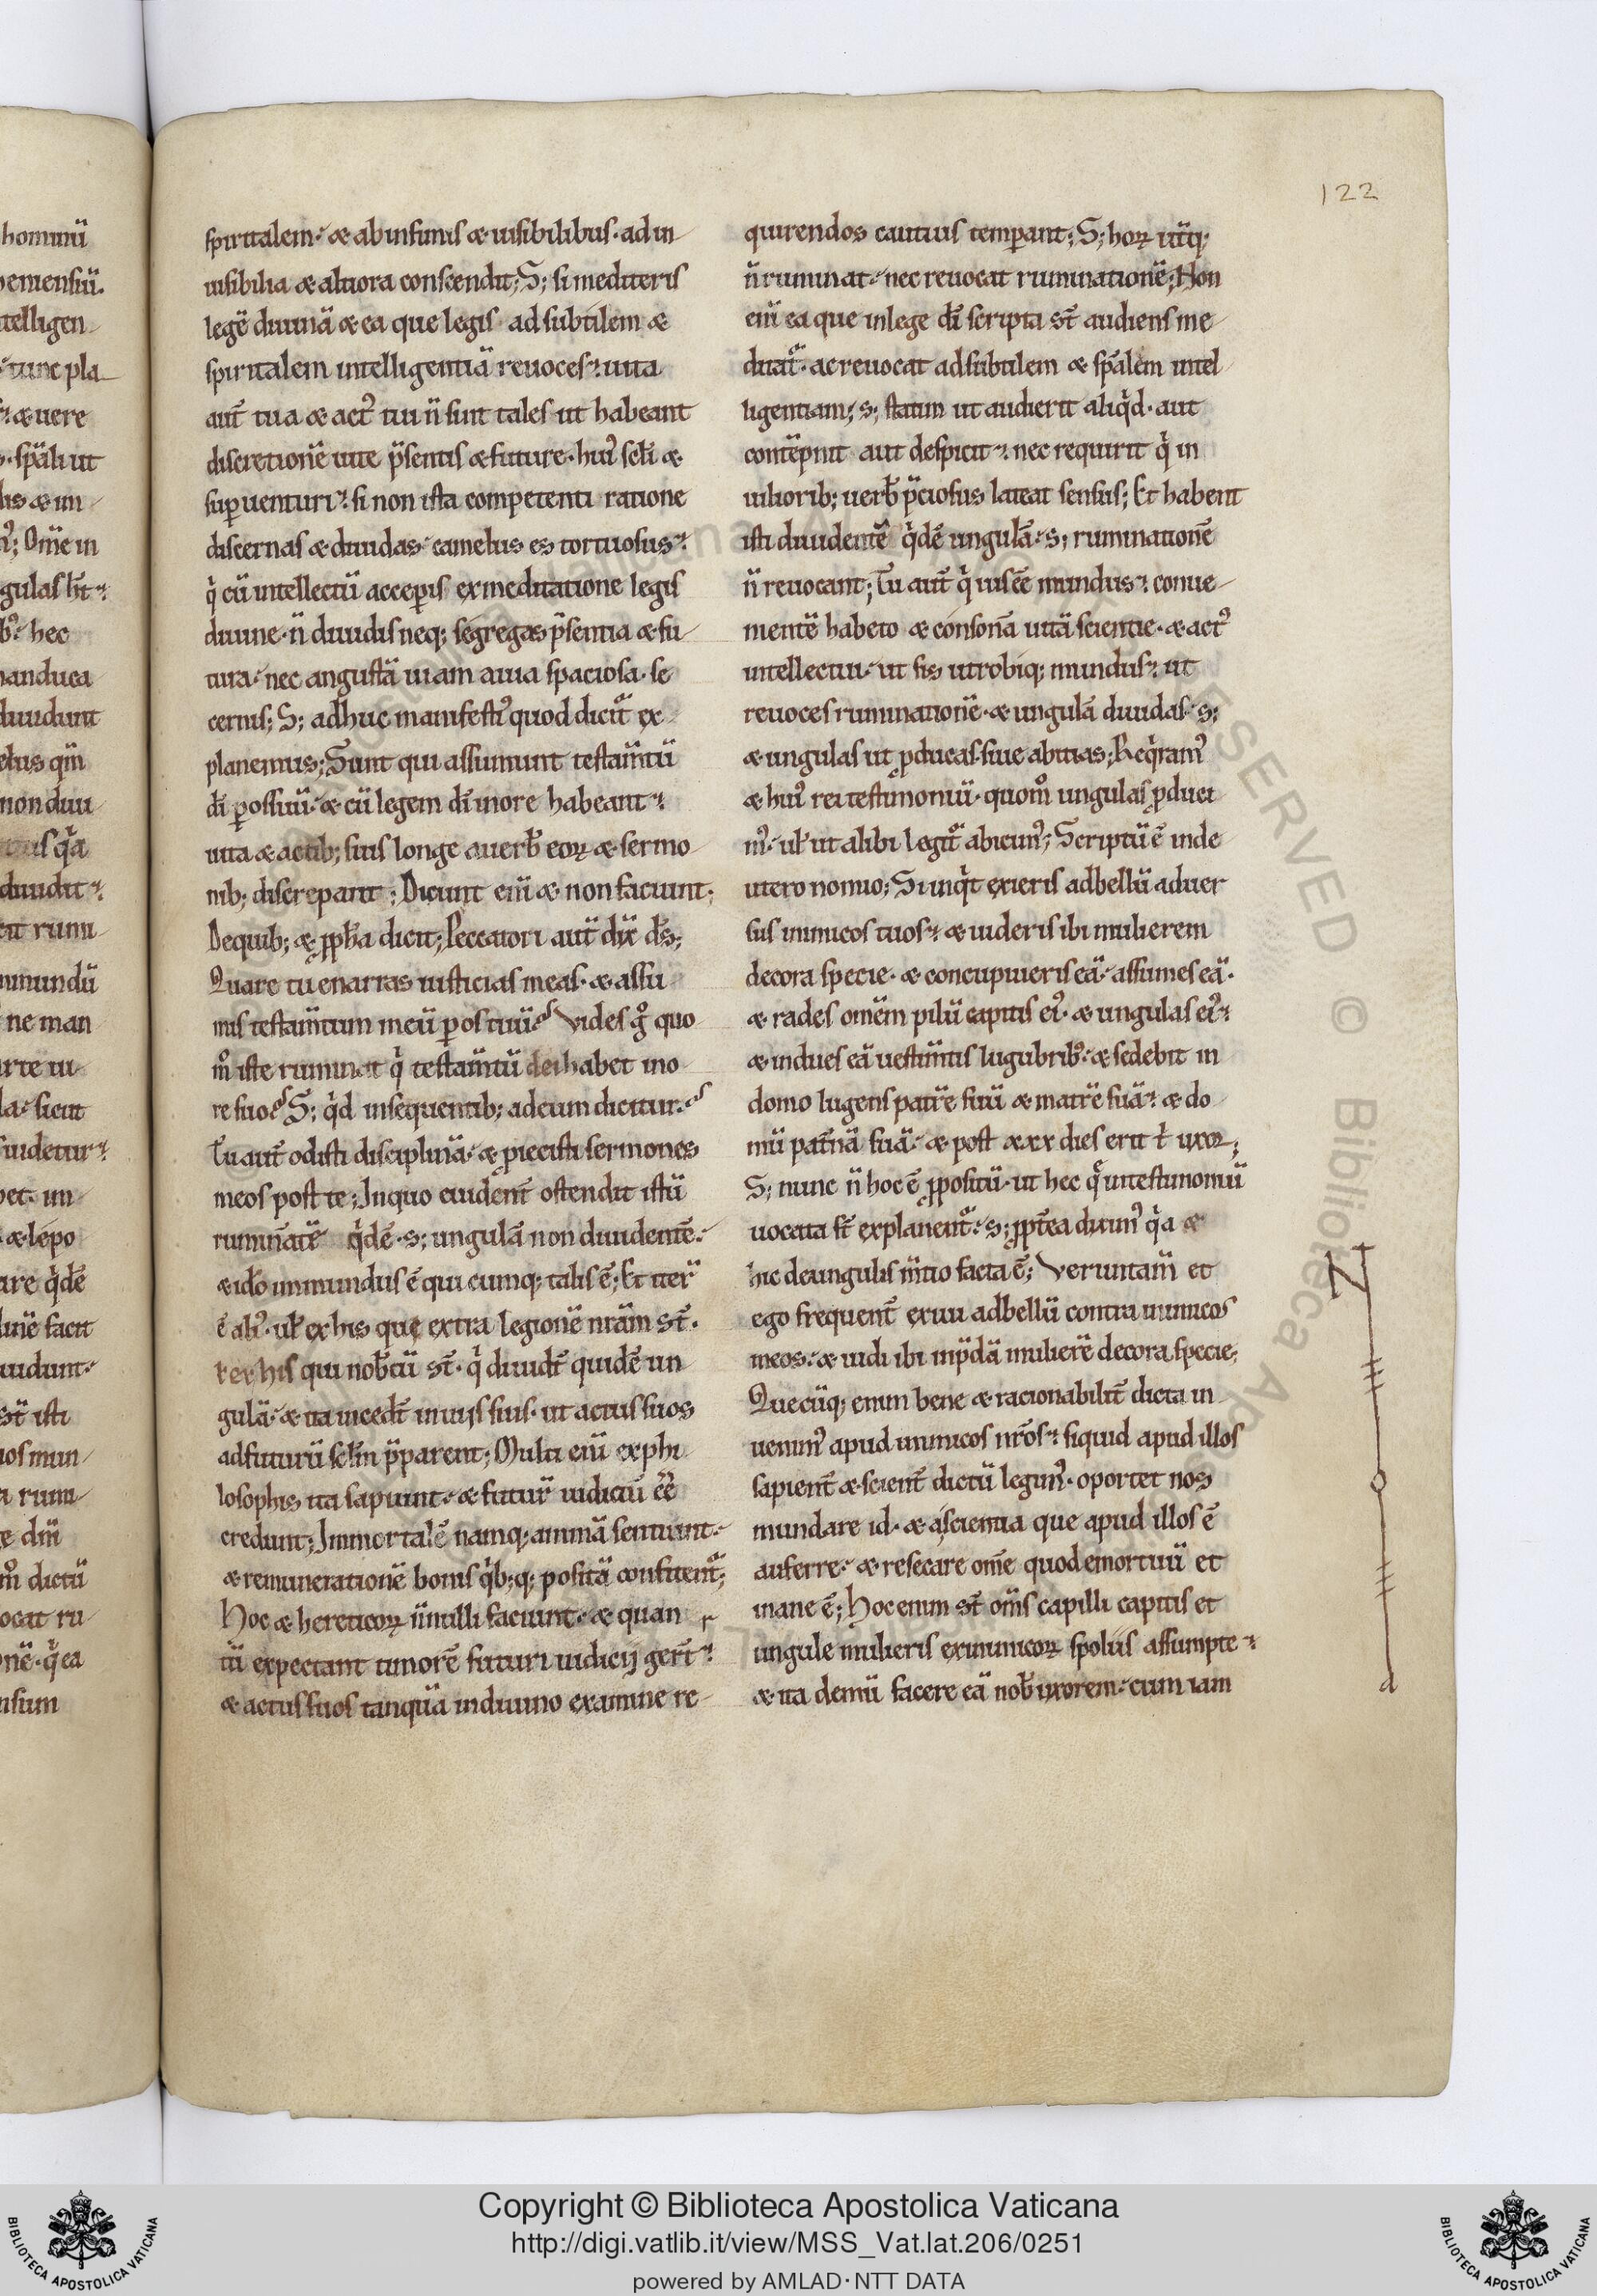 122
hominū
eniensiū.
telligen
tunc pla
æ uere
spāli ut
lis æ in
Om̄e in
gulas hn̄t
hec
anduca
diuidunt
elus qm̄
non diui
tus q̇a
diuidit
eit rumi
inmundū
ne man
arte ui
la sicut
uidetur
et in
æ lepo
are q̇dē
linē facit
iuidunt
st̄ isti
uos mun
rum
dm̄
m̊ dictū
ocat ru
nē q̇ ea
nsum
spiritalem. æ ab infimis æ uisibilibus. ad in
uisibilia æ altiora conscendit; S; si mediteris
legē diuinā æ ea que legis ad subtilem æ
spiritalem intelligentiā reuoces. uita
aut̄ tua æ act᾽ tui n̄ sunt tales ut habeant
discretionē uite p̄sentis æ future. hui᾽ scl̄i æ
sup̱uenturi. si non ista competenti ratione
discernas æ diuidas camelus es tortuosus.
q̇ cū intellectū accep̱is ex meditatione legis
diuine. n̄ diuidis neq; segregas p̄sentia æ fu
tura. nec angustā uiam a uia spaciosa. se
cernis; S; adhuc manifesti᾽ quod dicit᷑ ex
planemus; Sunt qui assumunt testam̄tū
dī p̱ os suū. æ cū legem dī in ore habeant.
uita æ actib; suis longe a uerb̄ eoꝝ æ sermo
nib; discrepant; Dicunt enī æ non faciunt;
De quib; æ ꝓph̄a dicit; Peccatori aut̄ dix̄ ds̄;
Quare tu enarras iusticias meas. æ assu
mis testam̄tum meū p̱ os tuū. Vides g̊ quo
m̊ iste ruminat q̇ testam̄tū dei habet in o
re suo. S; q̇d in sequentib; ad eum dicitur.
Tu aut̄ odisti disciplinā. æ ꝓiecisti sermones
meos post te; In quo euident̄ ostendit istū
ruminātē q̇dē. s; ungulā non diuidentē.
æ id̄o inmundus ē qui cumq; talis ē; Et iter̄
ē ali᾽. ul̄ ex his quę extra legionē nr̄am st̄.
ł ex his qui nob̄cū st̄. q̇ diuidt̄ quidē un
gulā. æ ita incedt̄ in uijs suis. ut actus suos
ad futurū scl̄m p̄parent; Multi enī ex phi
losophis ita sapiunt. æ futur̄ iudiciū eē̄
credunt; Immortalē namq; animā sentiunt.
æ remunerationē bonis q̇b;q; positā confitent᷑;
Hoc æ hereticoꝝ n̄nulli faciunt. æ quan
tū expectant timorē futuri iudicij gert̄.
æ actus suos tanquā in diuino examine re
quirendos cautius temp̱ant; S; hoꝝ ut̄q;
n̄ ruminat. nec reuocat ruminationē; Non
enī ea que in lege dī scripta st̄ audiens me
ditat᷑. ac reuocat ad subtilem æ sp̄alem intel
ligentiam; s; statim ut audierit aliq̇d. aut
contēpnit aut despicit. nec requirit q̇ in
uiliorib; uerb̄ p̄ciosus lateat sensus; Et habent
isti diuidentē q̇dē ungulā. s; ruminationē
n̄ reuocant; Tu aut̄ q̇ uis eē̄ mundus. conue
nientē habeto æ consonā uitā scientie. æ act᾽
intellectui. ut sis utrobiq; mundus. ut
reuoces ruminationē. æ ungulā diuidas. s;
æ ungulas ut ꝓducas. siue abitias; Req̇ram᾽
æ hui᾽ rei testimoniū. quom̊ ungulas ꝓduci
m᾽. ul̄ ut alibi legit᷑ abicim᾽; Scriptū ē in de
utero nomio; Si inq̇t exieris ad bellū aduer
sus inimicos tuos. æ uideris ibi mulierem
decora specie. æ concupiueris eā. assumes eā.
æ rades om̄em pilū capitis ei᾽. æ ungulas ei᾽.
æ indues eā uestim̄tis lugubrib᾽. æ sedebit in
domo lugens patrē suū æ matrē suā. æ do
mū pat̄nā suā. æ post xxx dies erit t̄ uxor;
S; nunc n̄ hoc ē ꝓpositū. ut hec q̄ in testimoniū
uocata st̄ explanent᷑. s; ꝓpt̄ea dixim᾽ q̇a æ
hic de ungulis m̄tio facta ē; Veruntam̄ et
ego frequent̄ exiui ad bellū contra inimicos
meos. æ uidi ibi in p̄dā mulierē decora specie;
Quecūq; enim bene æ racionabilit̄ dicta in
uenim᾽ apud inimicos nr̄os. siquid apud illos
sapient̄ æ scient̄ dictū legim᾽. oportet nos
mundare id. æ a scientia que apud illos ē
auferre. æ resecare om̄e quod emortuū et
inane ē; Hoc enim st̄ om̄s capilli capitis et
ungule mulieris ex inimicoꝝ spoliis assumpte.
æ ita demū facere eā nob̄ uxorem. cum iam
Copyright © Biblioteca Apostolica Vaticana
http://digi.vatlib.it/view/MSS_Vat.lat.206/0251
powered by AMLAD·NTT DATA
BIBLIOTECA APOSTOLICA VATICANA
BIBLIOTECA APOSTOLICA VATICANA